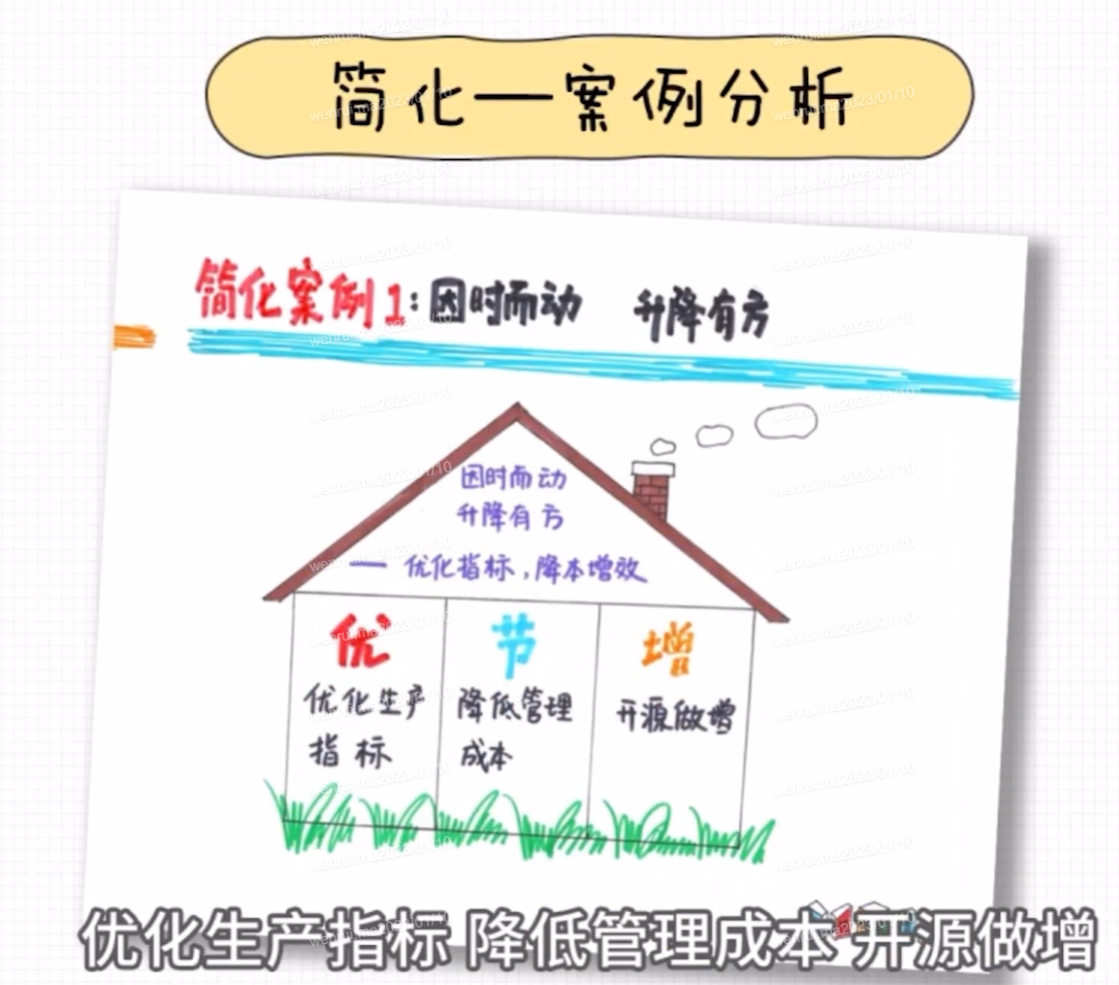 简化—案例分析
简化案例1:因时而动 升降有方
因时而动
升降有方
— 优化指标,降本增效
优
优化生产
指标
节
降低管理
成本
增
开源做增
优化生产指标 降低管理成本 开源做增
wenrui.ma2023/01/10